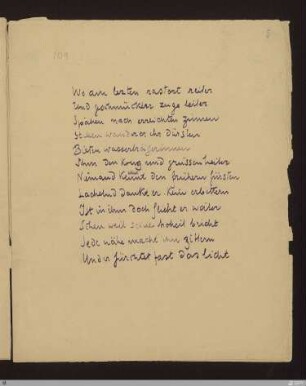 Wo am letzten rastort reiter
Und geschmückter züge leiter
Spähen nach erreichten zinnen
Stillen wanderer ihr Dürsten
Bieten wasserträgerinnen
Ihm den Krug und grüssen heiter
Niemand kennt den frühern fürsten
Lächelnd dankt er · kein erbittern
Ist in ihm doch flieht er weiter
Scheu weil seine hoheit bricht
Jede nähe macht ihn zittern
Und er fürchtet fast das licht